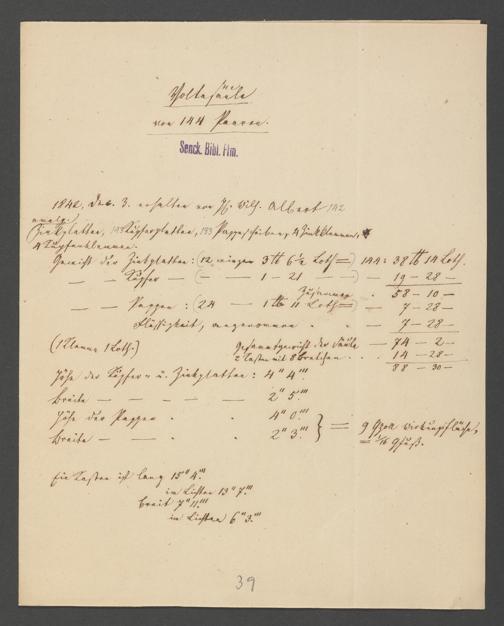 Voltasäule
von 144 Paaren.
Senck. Bibl. Ffm.
1842. Dec. 3. erhalten von Hr. Wilh. Albert 142
amalg.
Zinkplatten, 143 Kupferplatten, 133 Pappscheiben, 4 Zinkklemmen,
4 Kupferklemmen.
Gewicht der Zinkplatten: (12 wiegen 3 ℔ 6 1/2 Loth =) 144: 38 ℔ 14 Loth.
— — Kupfer — (— — 1 - 21 —) — 19 - 28 -
Zusammen . 58 - 10 -
— — Pappen: (24 — 1 ℔ 11 Loth =) - 7 - 28 -
Flüssigkeit, angenommen . - 7 - 28 -
(1 Klemme 1 Loth.) Gesammtgewicht der Säule - 74 - 2 -
2 Kasten mit 8 Brettchen . . 14 - 28 -
88 - 30 -
Höhe der Kupfer- u. Zinkplatten: 4" 4'''
Breite — — — — — 2" 5'''
Höhe der Pappen . . 4" 0'''
Breite — — . . 2" 3''' } = 9 Qzoll Wirkungsfläche,
= 1/16 Qfuß.
Ein Kasten ist lang 15" 4'''
im Lichten 13" 7'''
breit 7" 11'''
im Lichten 6" 3'''
39